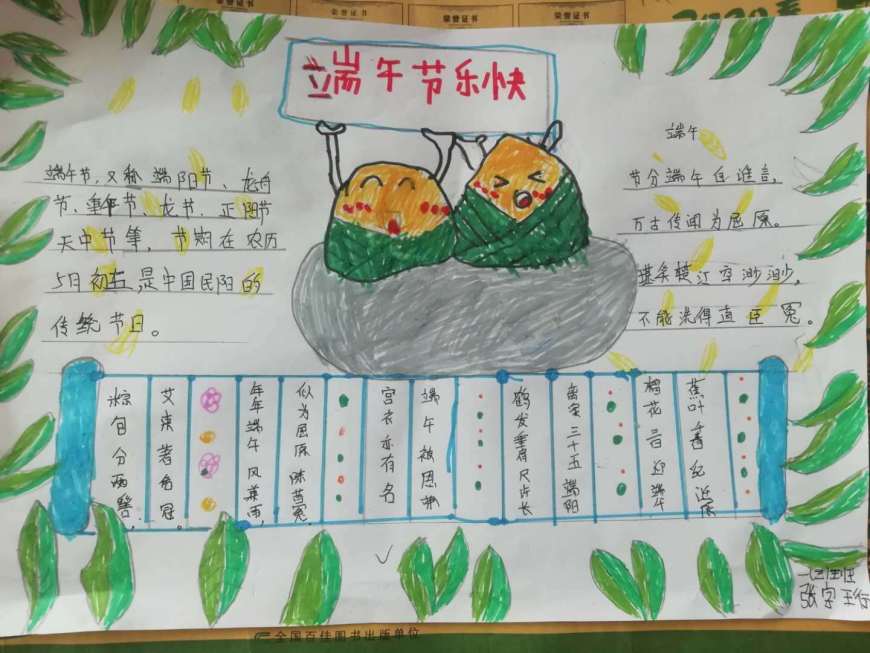 荣誉证书
荣誉证书
荣誉证书
端午节乐快
端午节,又称端阳节、龙舟
节、重午节、龙节、正阳节
天中节等,节期在农历
5月初五,是中国民阳的
传统节日。
端午
节分端午自谁言,
万古传闻为屈原。
堪笑楚江空渺渺,
不能洗得直臣冤。
粽包分两髻,
艾束著危冠。
年年端午风兼雨,
似为屈原陈昔冤。
宫衣亦有名
端午被恩荣
鹤发垂肩尺许长
离家三十五端阳
榴花
迎端午
蕉叶
全国百佳图书出版单位